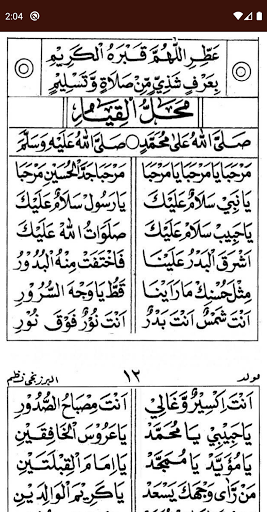 2:04
عَطِّرِ اللّٰهُمَّ قَبْرَهُ الْكَرِيْمِ
بِعَرْفٍ شَذِيٍّ مِّنْ صَلَاةٍ وَّتَسْلِيْمٍ
مَحَلُّ الْقِيَامِ
صَلَّى اللّٰهُ عَلٰى مُحَمَّدٍ صَلَّى اللّٰهُ عَلَيْهِ وَسَلَّمَ
مَرْحَبًا يَا مَرْحَبًا يَا مَرْحَبَا مَرْحَبًا جَدَّ الْحُسَيْنِ مَرْحَبَا
يَا نَبِيْ سَلَامٌ عَلَيْكَ يَا رَسُوْلْ سَلَامٌ عَلَيْكَ
يَا حَبِيْبْ سَلَامٌ عَلَيْكَ صَلَوَاتُ اللّٰهْ عَلَيْكَ
اَشْرَقَ الْبَدْرُ عَلَيْنَا فَاخْتَفَتْ مِنْهُ الْبُدُوْرُ
مِثْلَ حُسْنِكْ مَا رَاَيْنَا قَطُّ يَا وَجْهَ السُّرُوْرِ
اَنْتَ شَمْسٌ اَنْتَ بَدْرٌ اَنْتَ نُوْرٌ فَوْقَ نُوْرٍ
مولد ١٢ البرزنجي نظم
اَنْتَ اِكْسِيْرٌ وَّغَالِيْ اَنْتَ مِصْبَاحُ الصُّدُوْرِ
يَا حَبِيْبِيْ يَا مُحَمَّدْ يَا عَرُوْسَ الْخَافِقَيْنِ
يَا مُؤَيَّدْ يَا مُمَجَّدْ يَا اِمَامَ الْقِبْلَتَيْنِ
مَنْ رَاٰى وَجْهَكَ يَسْعَدْ يَا كَرِيْمَ الْوَالِدَيْنِ